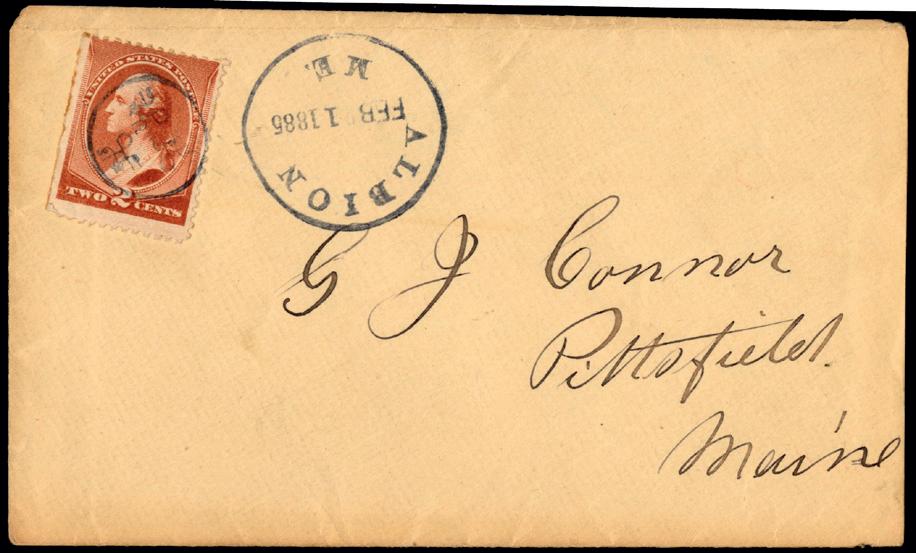 UNITED STATES POSTAGE
TWO 2 CENTS
ALBION
FEB 11 1885
ME.
G J Connor
Pittsfield
Maine